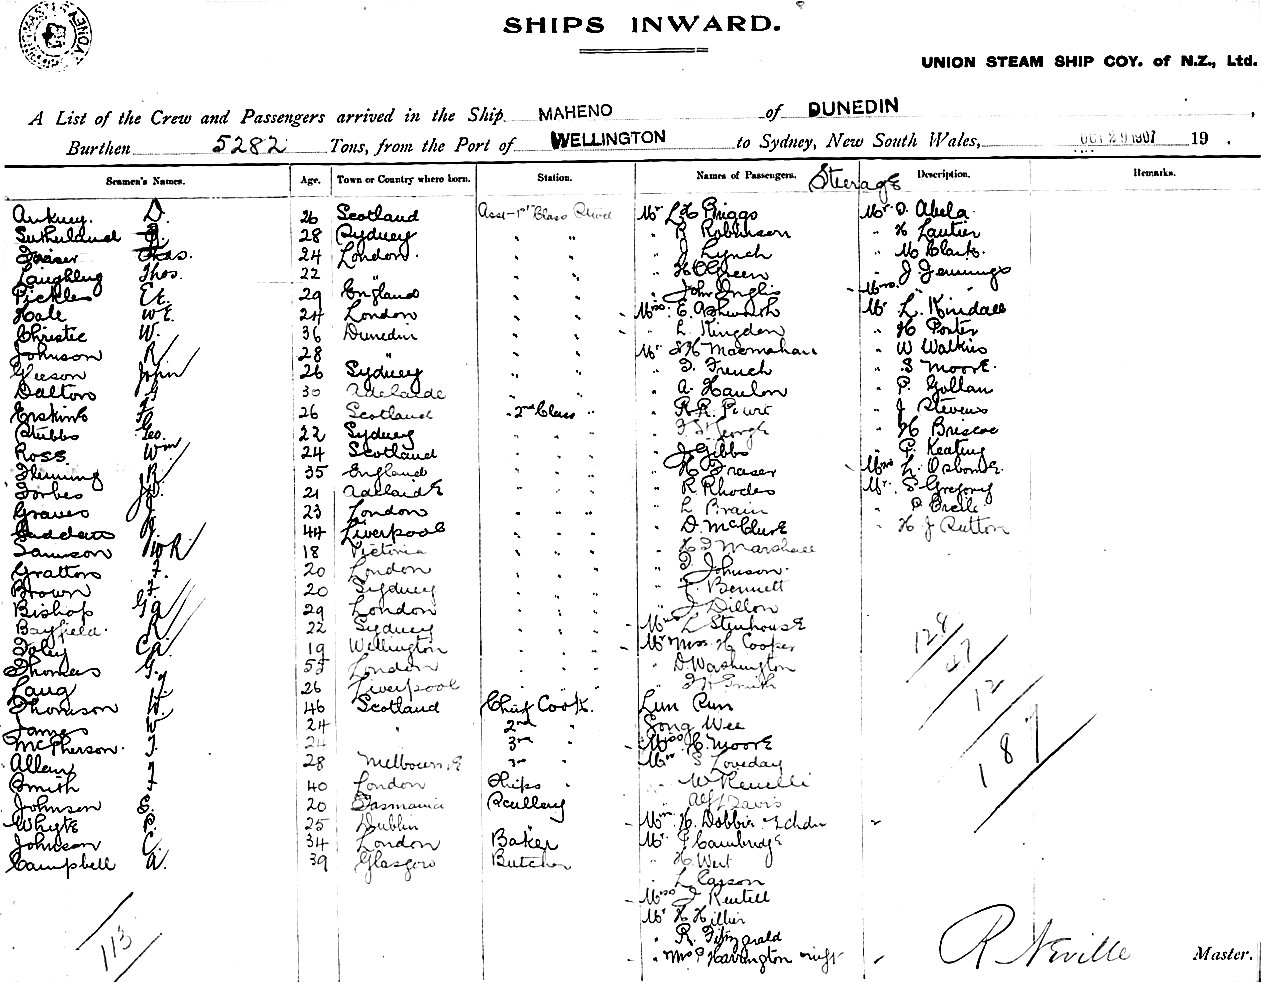 SHIPS INWARD.
UNION STEAM SHIP COY. of N.Z., Ltd.
A List of the Crew and Passengers arrived in the Ship MAHENO of DUNEDIN,
Burthen 5282 Tons, from the Port of WELLINGTON to Sydney, New South Wales, OCT 29 1907 19 .
Seamen's Names. Age. Town or Country where born. Station. Names of Passengers. Steerage Description. Remarks.
D. 26 Scotland Asst 1st Class Mr L H Briggs Mr D. Abela
Sutherland 28 Sydney " " " R Robinson " H Lautier
Fraser Thos. 24 London. " " " J Lynch " Mc Clark.
Laughlin Thos. 22 " " " " H O Green " J Jennings
Pickles 29 England " " " John Inglis Mrs.
Hale W E. 24 London " " Mrs. E. Ashworth Mr L. Kindall
Christie W. 36 Dunedin " " " L Kingdon " H Porter
Johnson R 28 " " " Mr Macmahon " W Watkins
Gleeson John 26 Sydney " " " D. French " S Moore.
Dalton 30 Adelaide " " " A. Hanlon " P. Gollan
Erskine 26 Scotland 2nd Class " " R.R. " J Stevens
Stubbs Geo. 22 Sydney " " " " H Briscoe
Ross Wm 24 Scotland " " " J Gibbs " P. Keating
Fleming R 35 England " " " H Fraser Mrs L. Osborne.
Forbes J.D. 21 Adelaide " " " R Rhodes Mr. S Gregory
Graves J 23 London " " " L Brain "
44 Liverpool " " " D. McClure " H J Rutton
Samson 18 Victoria " " " Marshall
Gratton F. 20 London " " " Johnson.
Brown F. 20 Sydney " " " Bennett
Bishop Ga 29 London " " " J Dillon
Bayfield. R 22 Sydney " " Mrs L Stenhouse 128
Foley Ca 19 Wellington " " Mr H Cooper 47
Thomas G. 55 London " " " D Washington 12
Lang 26 Liverpool " " " Smith 187
Thomson W. 46 Scotland Chief Cook. Lum Pun
James W 24 " 2nd " Song Wee
McPherson. J. 24 3rd " Mrs H. Moore
Allen J 28 Melbourne " Mr S Loveday
Smith F 40 London Ships " W
Johnson E. 20 Tasmania Scullery " Davis
Whyte P. 25 Dublin " H. Dobbin
Johnson C. 34 London Baker Mr. J Cambridge
Campbell A. 39 Glasgow Butcher " H West
" L Carson
Mrs J Rentell
Mr H Hillier
113 " R. Fitzgerald
" Mrs P Harrington
R Neville Master.